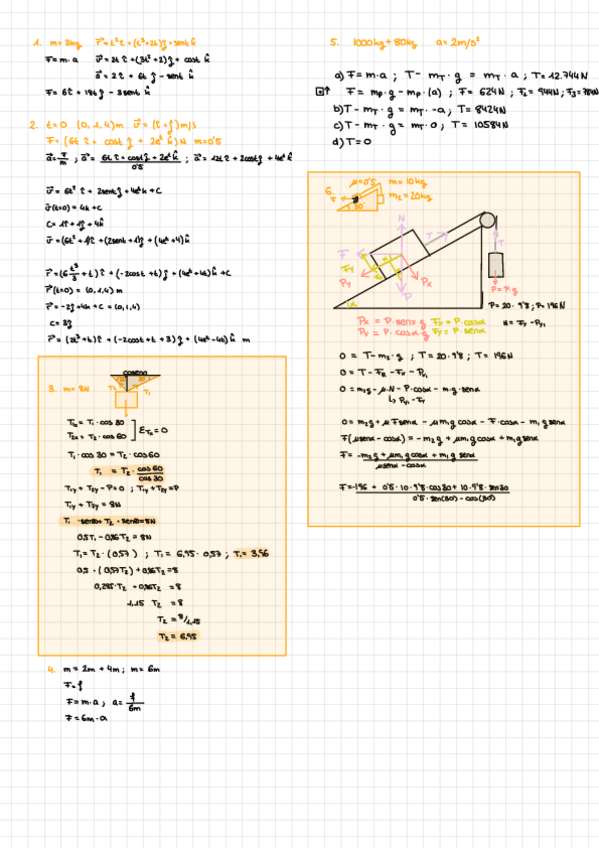 1. m=3kg r⃗ = t²î + (t³+2t)ĵ + sent k̂
F = m·a v⃗ = 2t î + (3t²+2)ĵ + cost k̂
a⃗ = 2î + 6t ĵ - sent k̂
F = 6î + 18t ĵ - 3sent k̂
2. t=0 (0,1,4)m v⃗ = (î+ĵ) m/s
F = (6t î + cost ĵ + 2eᵗ k̂) N m=0'5
a⃗ = F/m ; a⃗ = 6t î + cost ĵ + 2eᵗ k̂ / 0'5 ; a⃗ = 12t î + 2cost ĵ + 4eᵗ k̂
v⃗ = 6t² î + 2sent ĵ + 4eᵗ k + C
v⃗(t=0) = 4k + C
C = 1î + 1ĵ + 4k̂
v⃗ = (6t² + 1)î + (2sent + 1)ĵ + (4eᵗ + 4)k̂
r⃗ = (6 t³/3 + t)î + (-2cost + t)ĵ + (4eᵗ + 4t)k̂ + C
r⃗(t=0) = (0,1,4) m
r⃗ = -2ĵ + 4k + C = (0,1,4)
C = 3ĵ
r⃗ = (2t³+t)î + (-2cost + t + 3)ĵ + (4eᵗ - 4t)k̂ m
3. m = 8N
T₂ T₁
T₁ₓ = T₁ · cos 30
T₂ₓ = T₂ · cos 60
ΣTₓ = 0
T₁ · cos 30 = T₂ · cos 60
T₁ = T₂ · cos 60 / cos 30
T₁y + T₂y - P = 0 ; T₁y + T₂y = P
T₁y + T₂y = 8N
0,5T₁ - 0,86T₂ = 8N
T₁ = T₂ · (0,57) ; T₁ = 6,95 · 0,57 ; T₁ = 3,96
0,5 · (0,57T₂) + 0,86T₂ = 8
0,285T₂ + 0,86T₂ = 8
1,15 T₂ = 8
T₂ = 8/1,15
T₂ = 6,95
4. m = 2m + 4m ; m = 6m
F = f
F = m·a ; a = f/6m
F = 6m·a
5. 1000kg + 80kg a = 2m/s²
a) F = m·a ; T - m_T · g = m_T · a ; T = 12.744N
F = m_p · g - m_p · (a) ; F = 624N ; F₂ = 944N ; F₃ = 784N
b) T - m_T · g = m_T · -a ; T = 8424N
c) T - m_T · g = m_T · 0 ; T = 10584N
d) T = 0
6. μ=0'5 m = 10kg
m₂ = 20kg
30°
N
T
F
Fy
Py
Pₓ
P
T
P = P·g
α
P = 20 · 9'8 ; P = 196N
Pₓ = P·senα·g Fₓ = P·cosα
Py = P·cosα·g Fy = P·senα
N = Fy - Py₁
0 = T - m₂ · g ; T = 20 · 9'8 ; T = 196N
0 = T - F_R - Fₓ - Pₓ₁
0 = m₂g - μ·N - P·cosα - m·g·senα
↳ Py₁ - Fy
0 = m₂g + μFsenα - μm₁g cosα - F·cosα - m₁g senα
F(μsenα - cosα) = -m₂g + μm₁g cosα + m₁g senα
F = -m₂g + μm₁g cosα + m₁g senα / μsenα - cosα
F = -196 + 0'5 · 10 · 9'8 · cos30 + 10 · 9'8 · sen30 / 0'5 · sen(30) - cos(30)